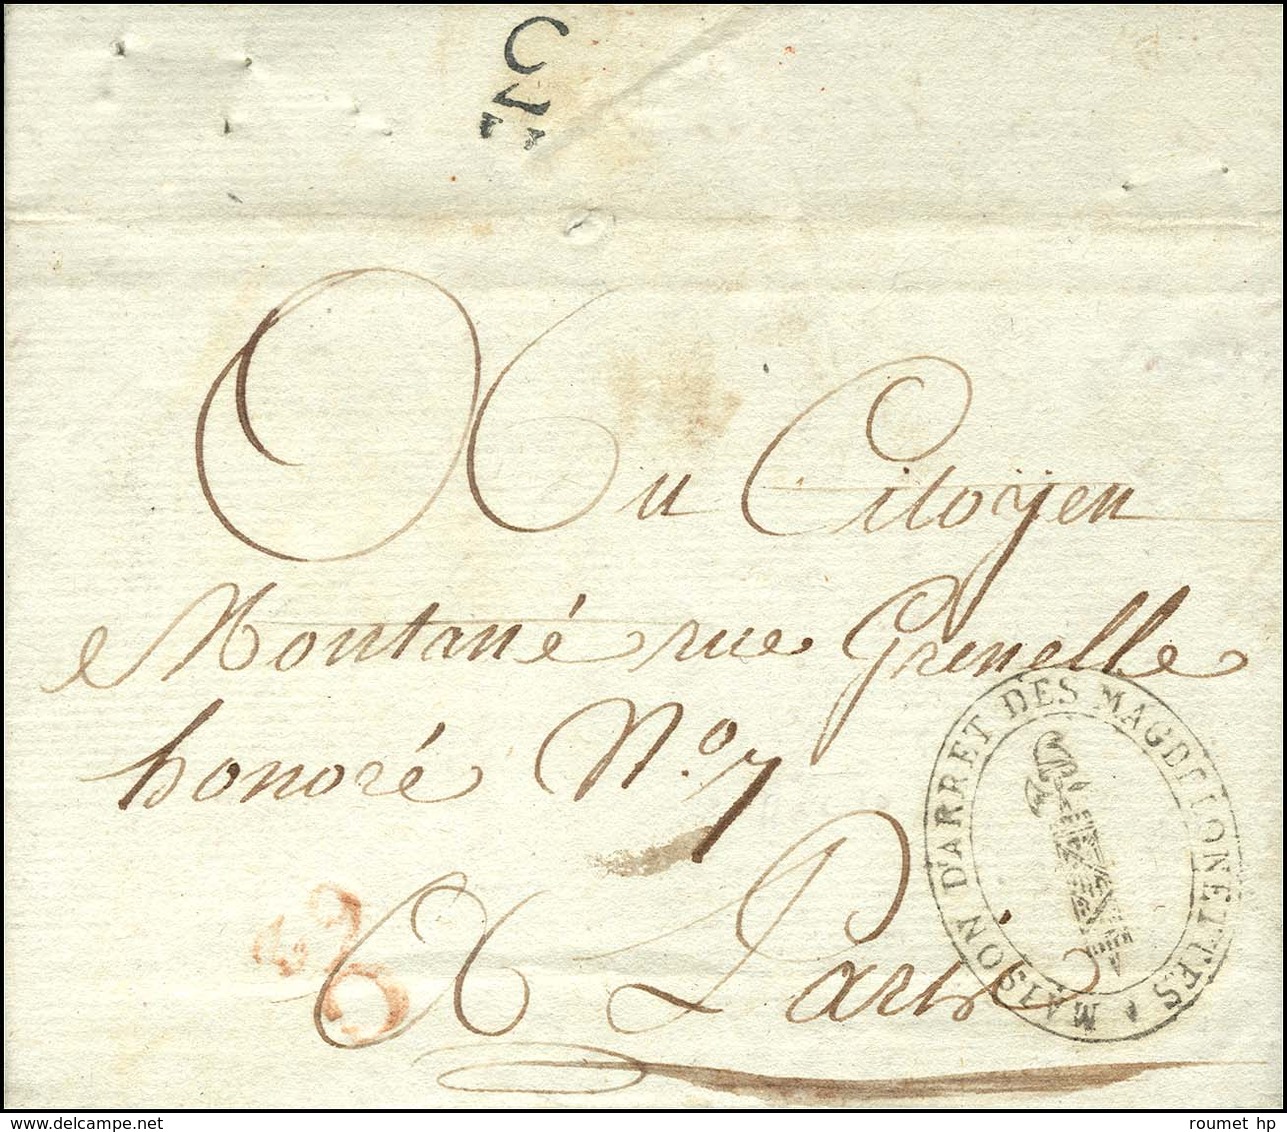 Au Citoyen
Montané rue Grenelle
honoré N.º 7
A Paris
MAISON D'ARRET DES MAGDELONETTES
www.delcampe.net
roumet hp